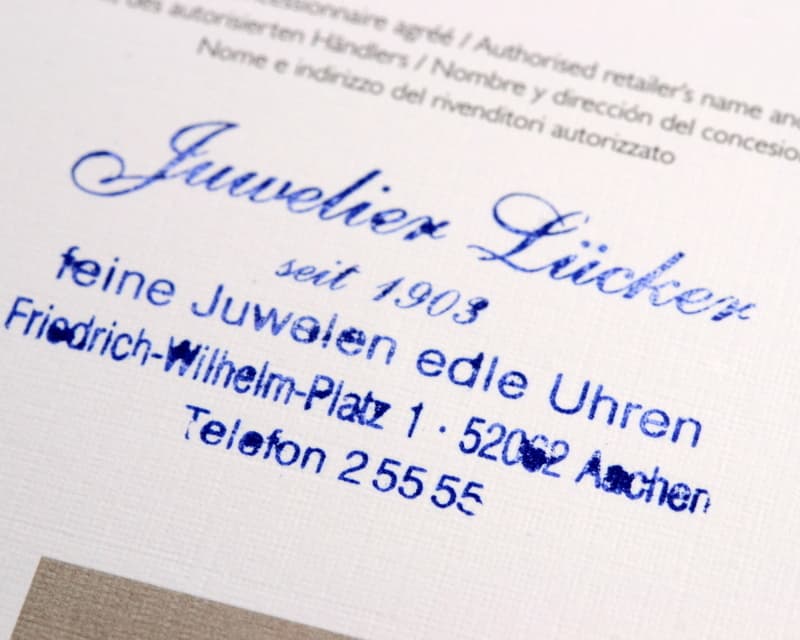 cessionnaire agréé / Authorised retailer's name and
des autorisierten Händlers / Nombre y dirección del concesio
Nome e indirizzo del rivenditori autorizzato
Juwelier Lücker
seit 1903
feine Juwelen edle Uhren
Friedrich-Wilhelm-Platz 1 · 52062 Aachen
Telefon 25555